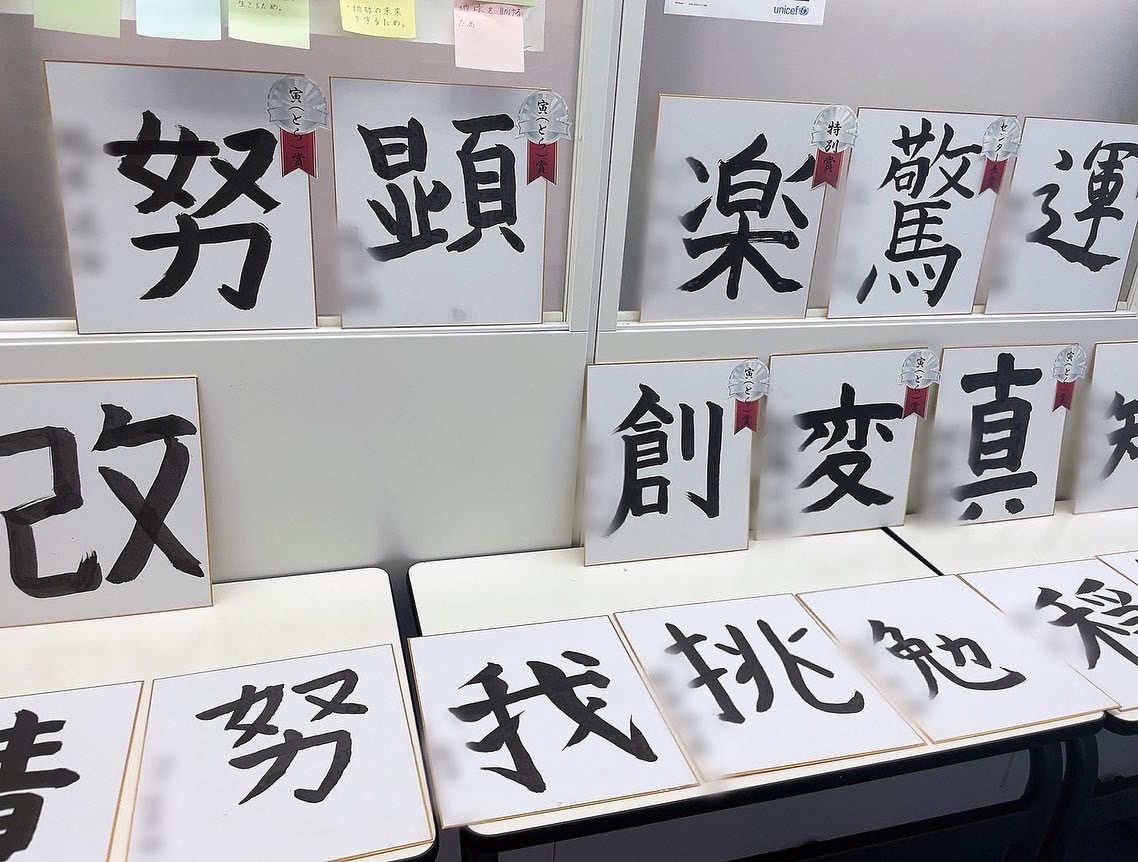 生きるため。
・地球の未来
を守るため。
地球を助ける
ため
unicef
努
寅(とら)賞
顕
寅(とら)賞
楽
特別賞
驚
センター長賞
運
改
創
寅(とら)賞
変
寅(とら)賞
真
寅(とら)賞
努
我
挑
勉
穏